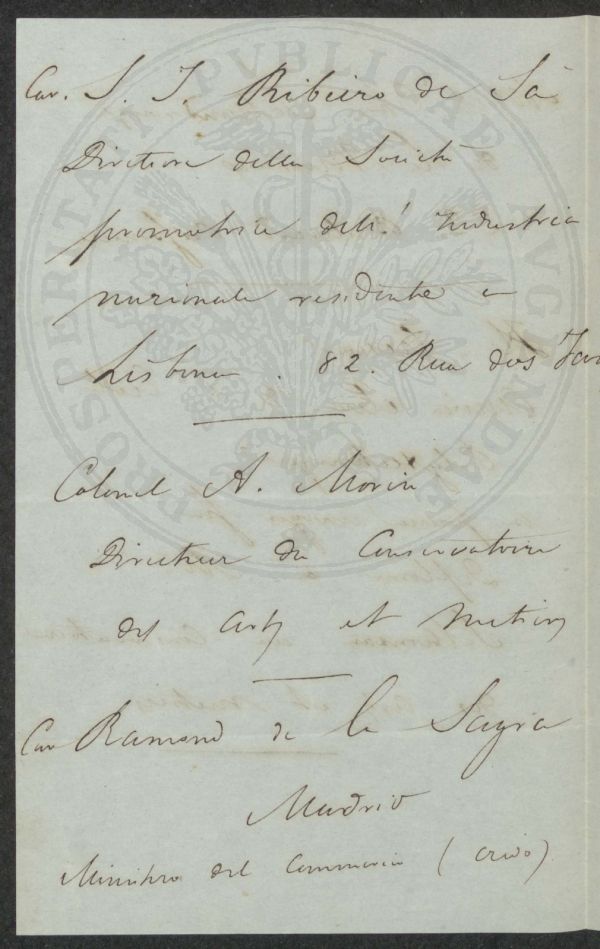 Cav. S. J. Ribeiro de Sá
Direttore della Società
promotrice dell' Industria
nazionale residente a
Lisbona . 82. Rua dos
Colonel A. Morin
Directeur du Conservatoire
des Arts et Metiers
Cav Ramond de la Sagra
Madrid
Ministero del Commercio (credo)
PROSPERITATI PVBLICAE AVGENDAE